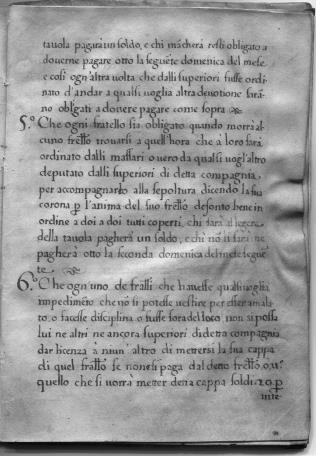 tauola pagara un soldo, e chi mãchera resti obligato a
douerne pagare otto la seguẽte domenica del mese
e cosi ogn'altra uolta che dalli superiori fusse ordi
nato d'andar a qualsi uoglia altra deuotione sarã
no obligati a douere pagare come sopra
5.º Che ogni fratello sia obligato quando morrà al
cuno frẽllo trouarsi a quell'hora che à loro sarà
ordinato dalli massari o uero da qual si uogl'altro
deputato dalli superiori di detta compagnia,
per accompagnarlo alla sepoltura dicendo la sua
corona p̱ l'anima del suo frẽllo defonto bene in
ordine a doi a doi tutti coperti, chi sarà al legere
della tauola pagherà un soldo, e chi nõ li sarà ne
pagherà otto la seconda domenica del mese segue
te
6.º Che ogn'uno de fratlli che hauesse qualsiuoglia
impedimẽto che nõ si potesse uestire per esser amala
to, o facesse disciplina o fusse fora del loco non si possa
lui ne altri ne ancora superiori di detta compagnia
dar licenza à niun'altro di mettersi la sua cappa
di quel fratllo se non si paga dal detto frẽllo, o
quello che si uorrà metter detta cappa soldi .20. p̱